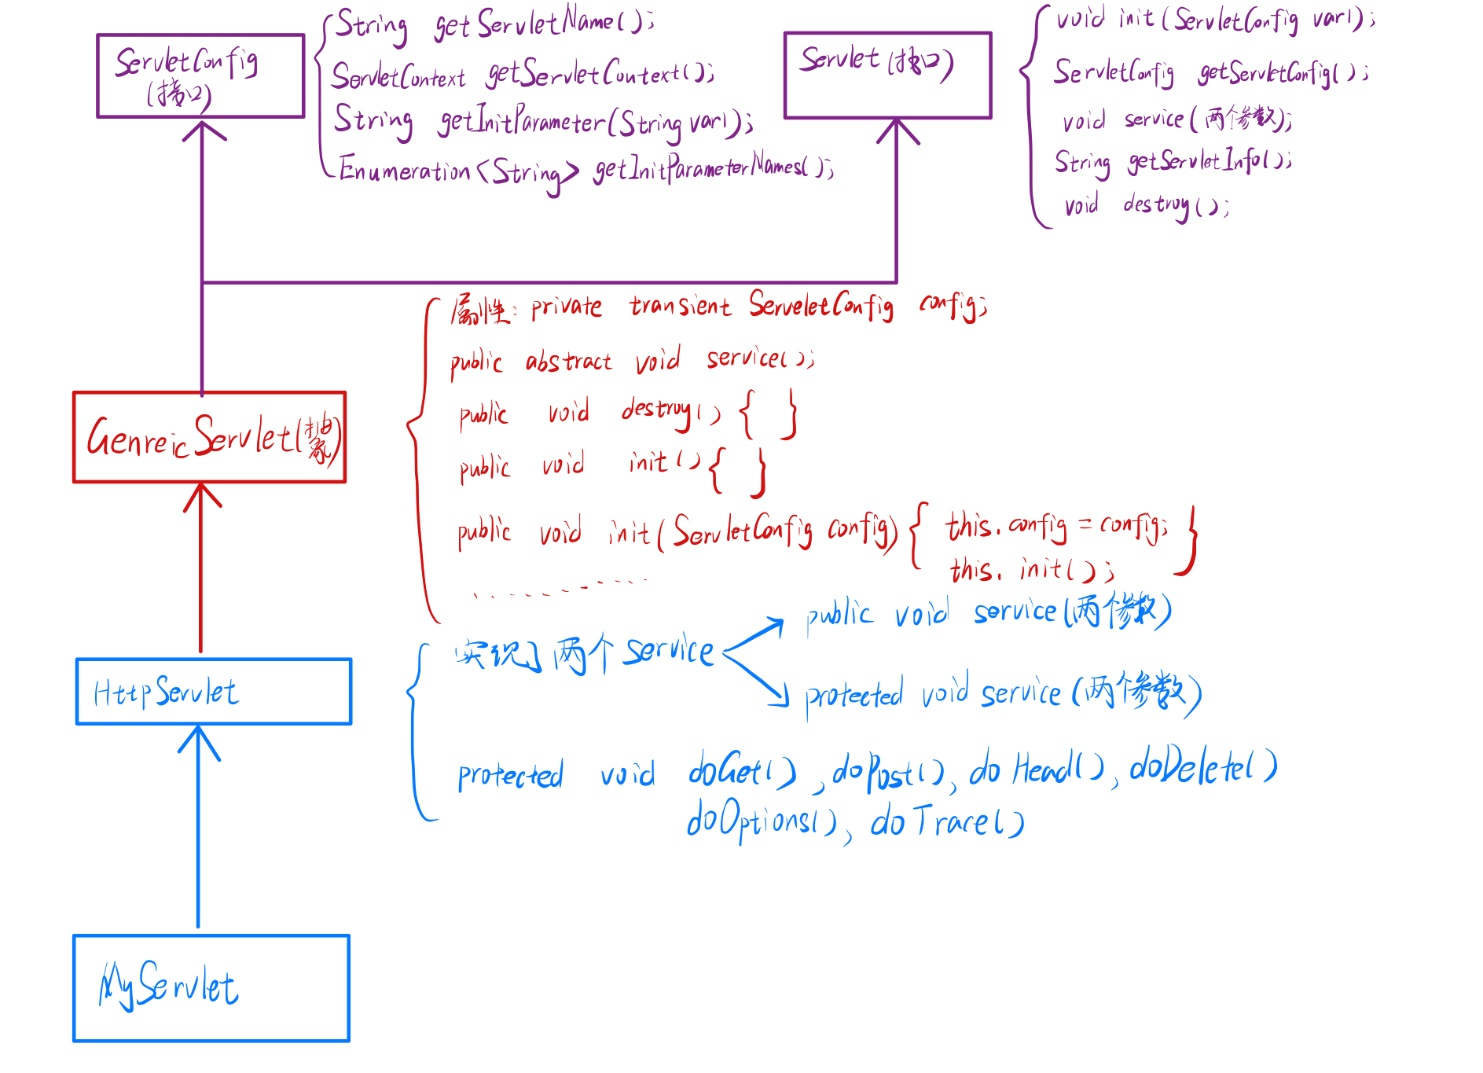 ServletConfig
(接口)
String getServletName();
ServletContext getServletContext();
String getInitParameter(String var1);
Enumeration<String> getInitParameterNames();
Servlet (接口)
void init(ServletConfig var1);
ServletConfig getServletConfig();
void service(两个参数);
String getServletInfo();
void destroy();
GenreicServlet(抽象)
属性: private transient ServeletConfig config;
public abstract void service();
public void destroy() { }
public void init() { }
public void init(ServletConfig config) { this.config = config;
this. init(); }
..........
HttpServlet
实现了两个service
public void service(两个参数)
protected void service(两个参数)
protected void doGet(), doPost(), doHead(), doDelete()
doOptions(), doTrace()
MyServlet